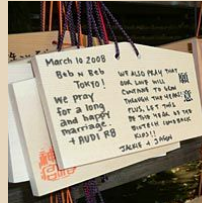 March 10 2008
Bob N Beb
Tokyo!
We pray
for a long
and happy
marriage.
+ AUDI R8
WE ALSO PRAY THAT
OUR LOVE WILL
CONTINUE TO GROW
THROUGH THE YEARS!
PLUS, LET THIS
BE THE YEAR OF THE
BIOTECH COMEBACK
KID!!
JACKIE + JASON